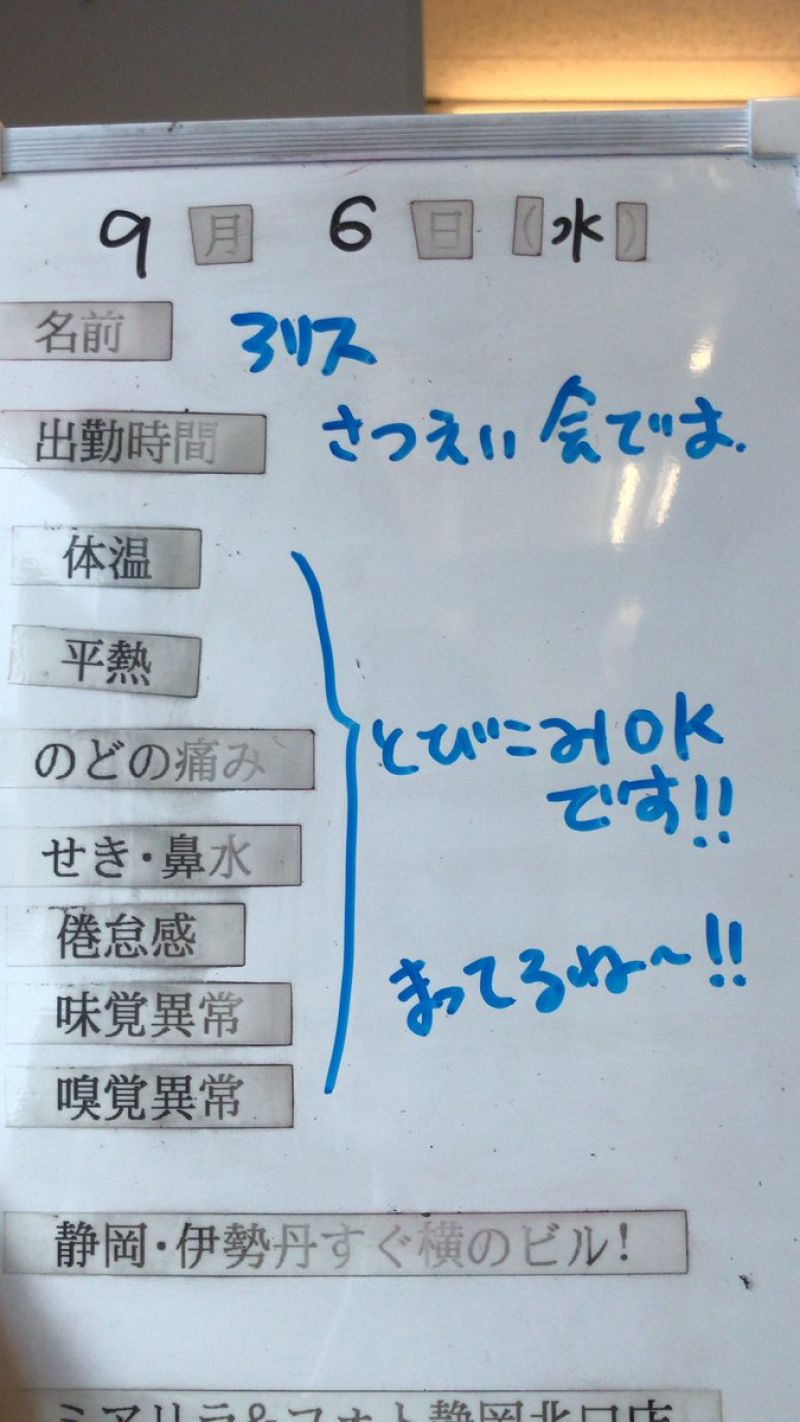 9月 6日 (水)
名前 アリス
出勤時間 さつえい会です.
体温
平熱
のどの痛み とびこみOK
です!!
せき・鼻水
倦怠感
味覚異常 まってるね〜!!
嗅覚異常
静岡・伊勢丹すぐ横のビル!